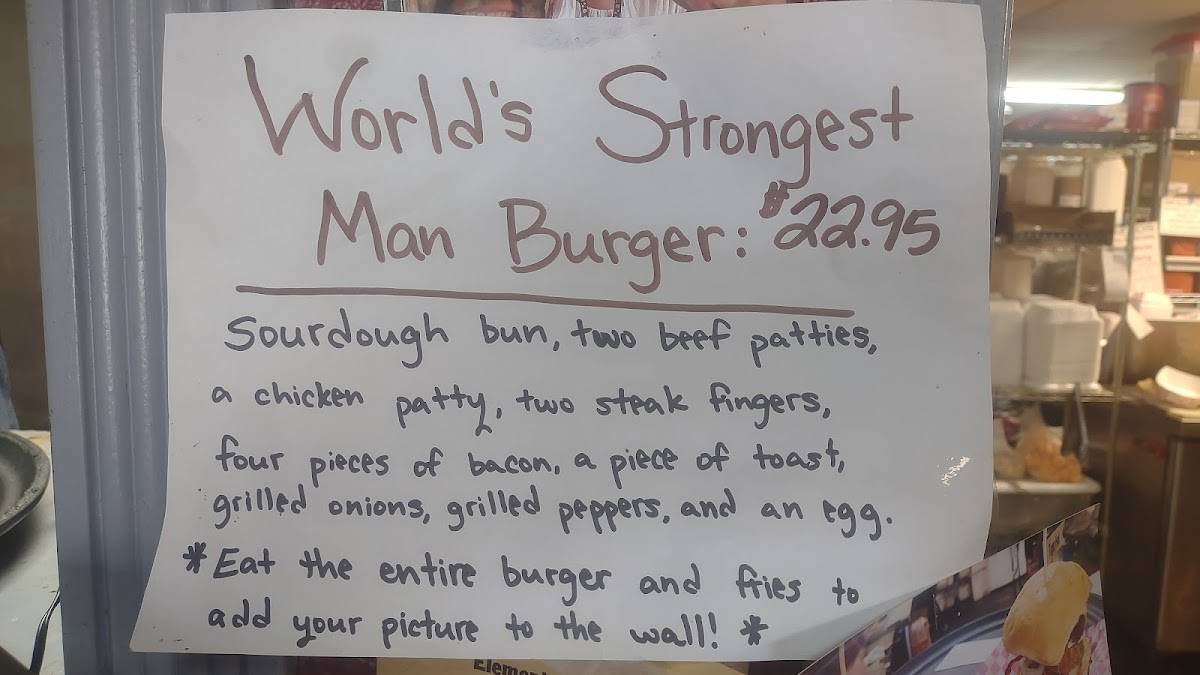 World's Strongest
Man Burger: $22.95
Sourdough bun, two beef patties,
a chicken patty, two steak fingers,
four pieces of bacon, a piece of toast,
grilled onions, grilled peppers, and an egg.
*Eat the entire burger and fries to
add your picture to the wall! *